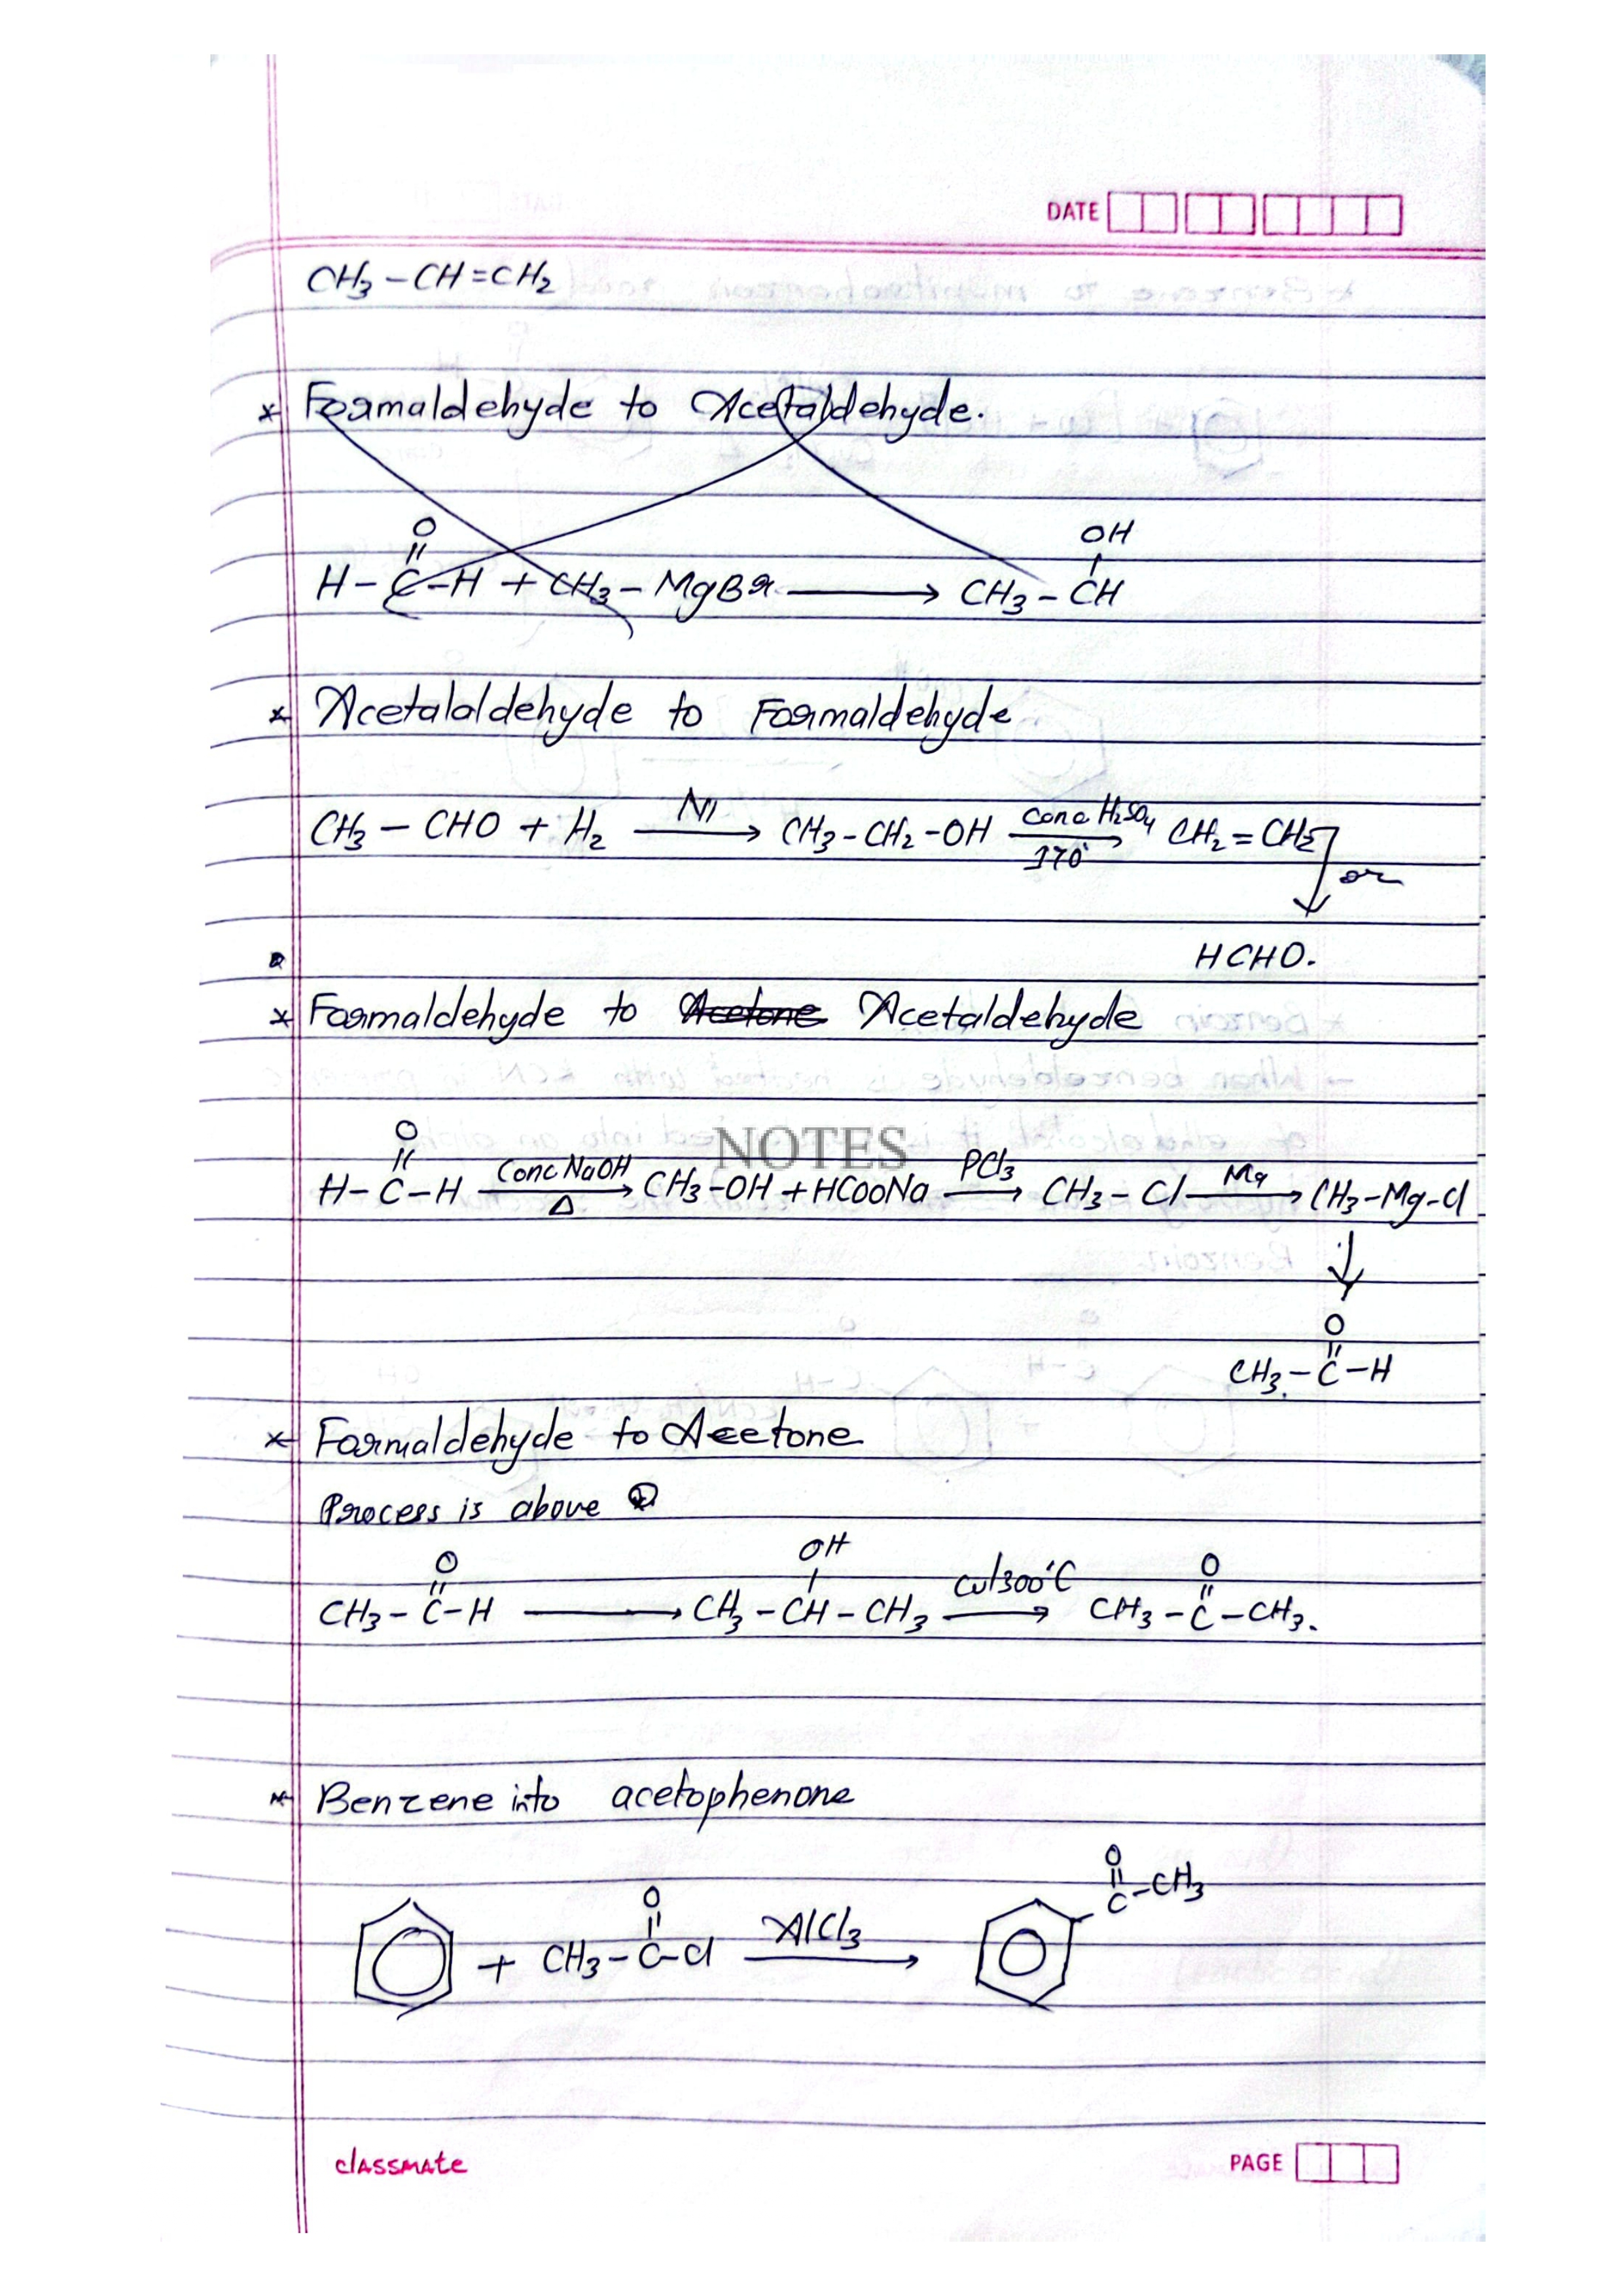 DATE
CH3 – CH = CH2
* Formaldehyde to Acetaldehyde.
O
||
H – C – H + CH3 – MgBr → CH3 – CH
OH
|
* Acetalaldehyde to Formaldehyde
CH3 – CHO + H2 —Ni→ CH3 – CH2 – OH —Conc H2SO4 / 170°→ CH2 = CH2
HCHO.
* Formaldehyde to Acetone Acetaldehyde
NOTES
O
||
H – C – H —Conc NaOH / Δ→ CH3 – OH + HCooNa —PCl3→ CH3 – Cl —Mg→ CH3 – Mg – Cl
↓
O
||
CH3. – C – H
* Formaldehyde to Acetone
Process is above
O OH O
|| | ||
CH3 – C – H → CH3 – CH – CH3 —Cu/300°C→ CH3 – C – CH3.
* Benzene into acetophenone
O O
|| ||
+ CH3 – C – Cl —AlCl3→ C – CH3
classmate
PAGE